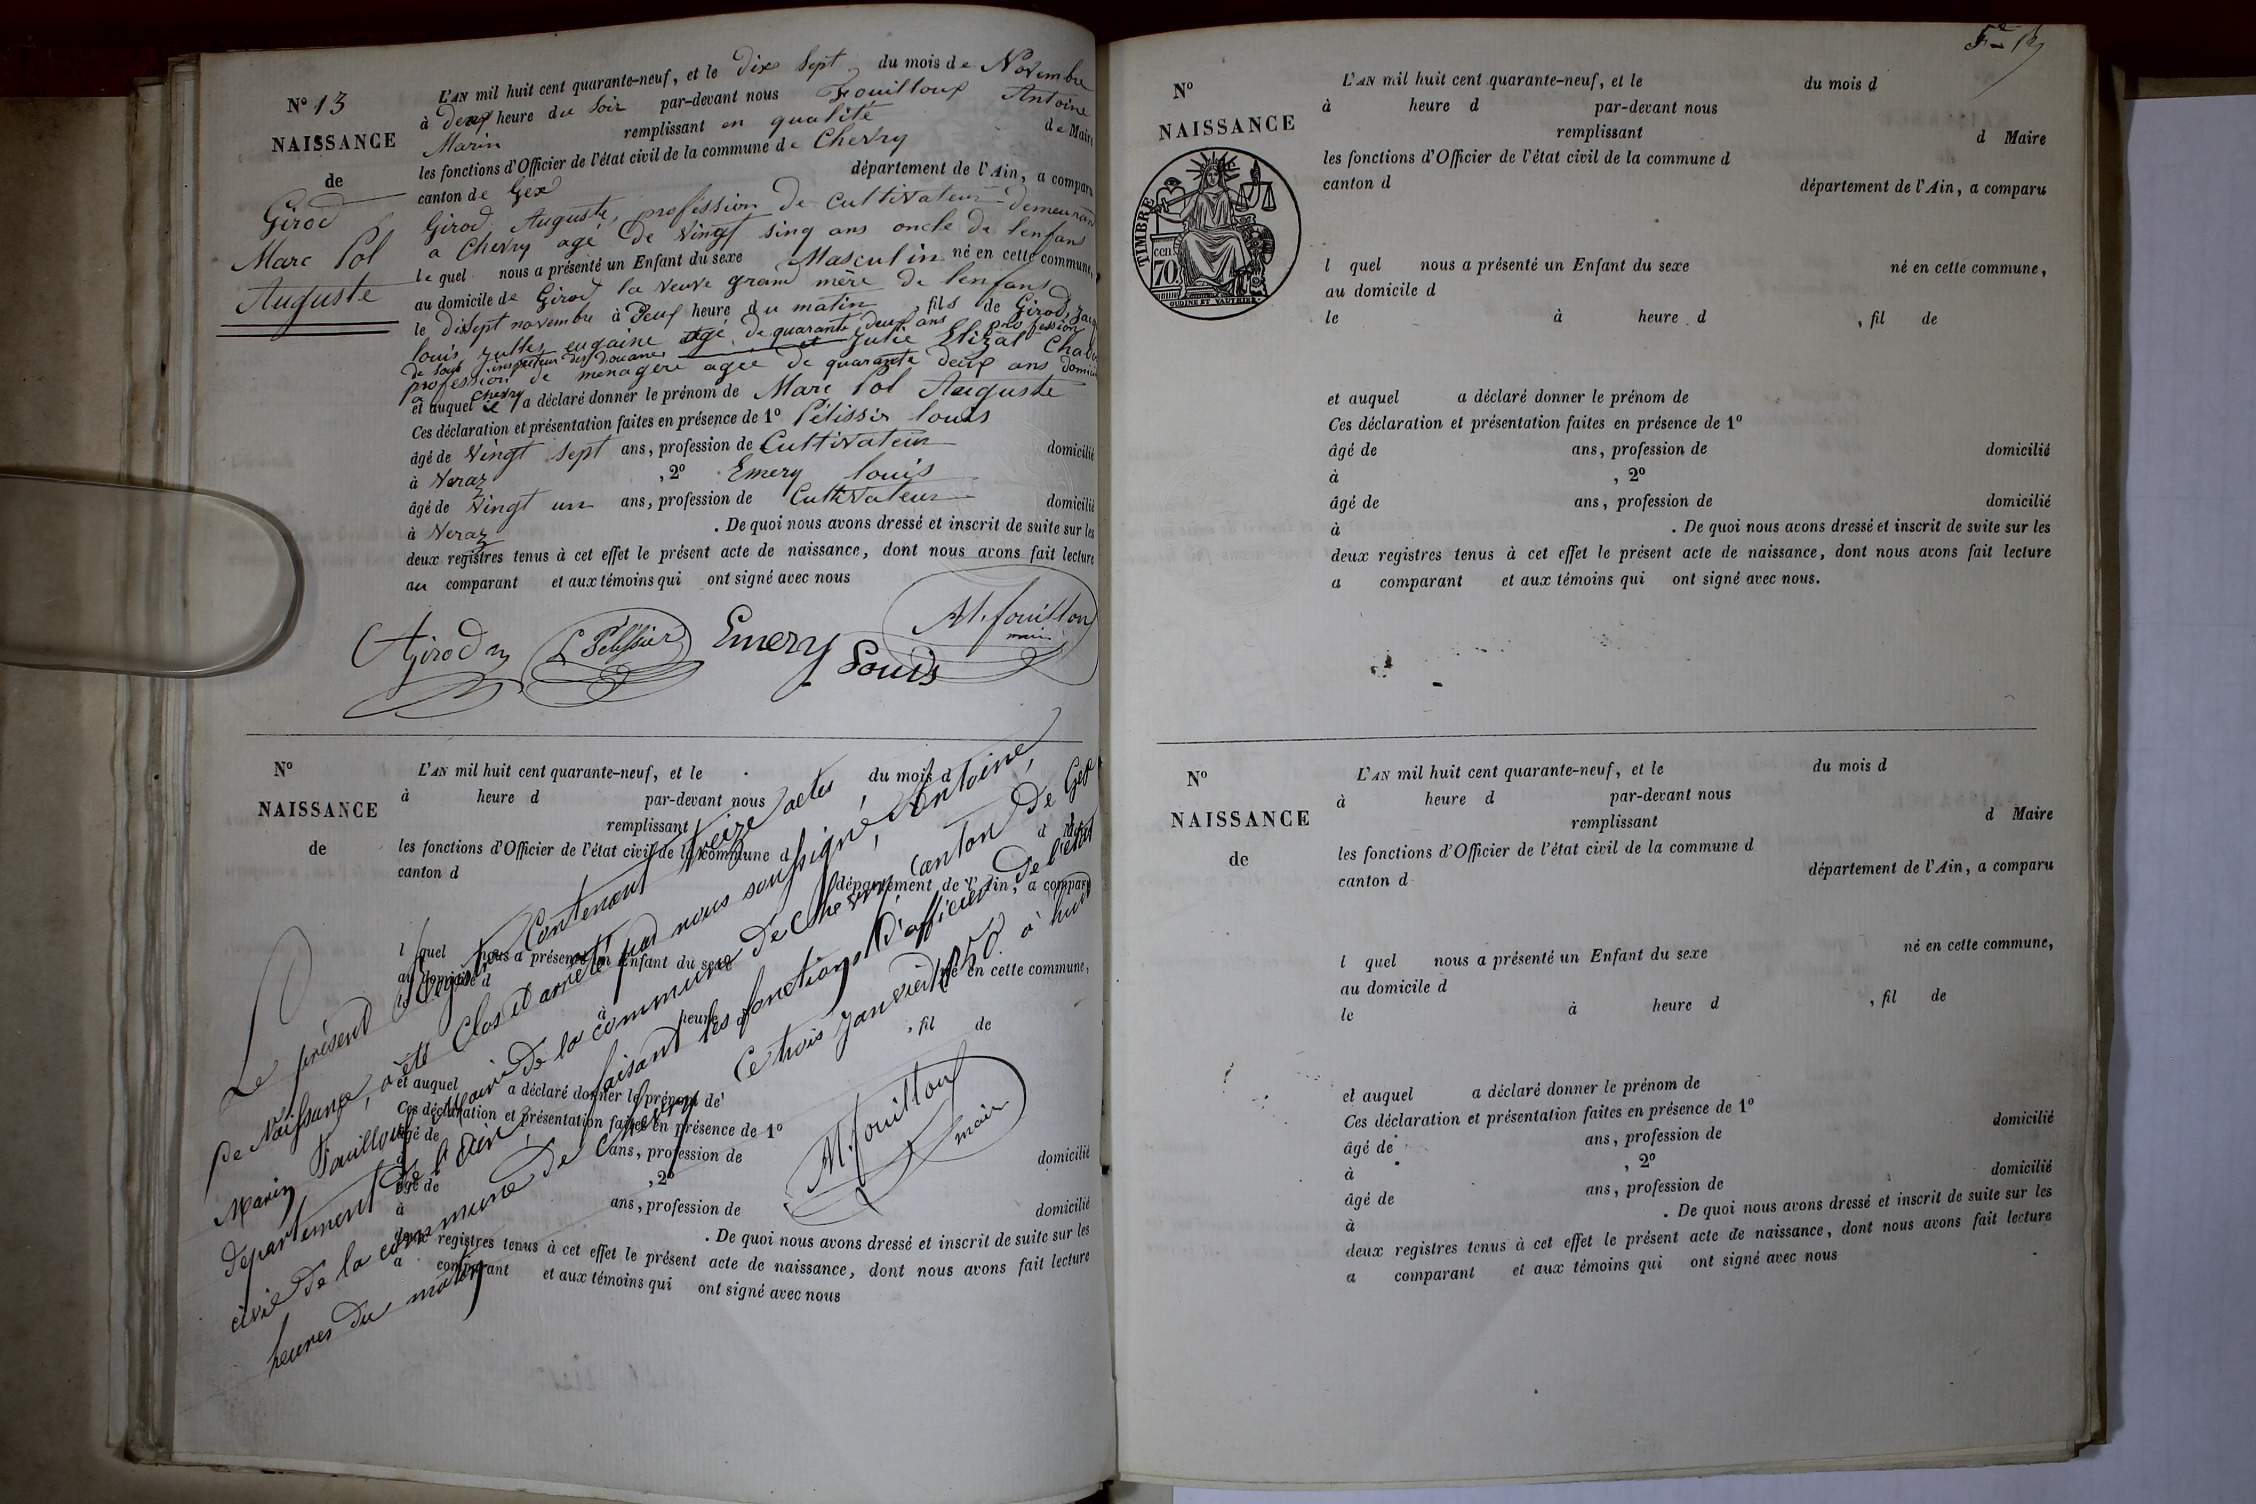 N° 13
NAISSANCE
de
Girod
Marc Pol
Auguste
L'AN mil huit cent quarante-neuf, et le dix Sept du mois de Novembre
à deux heure du Soir par-devant nous Fouilloux Antoine
Marin remplissant en qualité de Maire
les fonctions d'Officier de l'état civil de la commune de Chevry
canton de Gex département de l'Ain, a comparu
Girod Auguste, profession de Cultivateur demeurant
a Chevry agé de vingt sinq ans oncle de lenfans
le quel nous a présenté un Enfant du sexe Masculin né en cette commune,
au domicile de Girod la veuve grand mère de lenfans
le dixsept novembre à neuf heure du matin, fils de Girod,
louis eugaine agé de quarante deux ans profession
de sous inspecteur des douane et Julie
profession de menagère agée de quarante deux ans
a Chevry
et auquel il a déclaré donner le prénom de Marc Pol Auguste
Ces déclaration et présentation faites en présence de 1° Pélissier louis
âgé de vingt sept ans, profession de Cultivateur domicilié
à Veraz, 2° Emery louis
âgé de vingt un ans, profession de Cultivateur domicilié
à Veraz. De quoi nous avons dressé et inscrit de suite sur les
deux registres tenus à cet effet le présent acte de naissance, dont nous avons fait lecture
au comparant et aux témoins qui ont signé avec nous
AGirod L Pélissier Emery Louis M. fouilloux
maire
N°
NAISSANCE
de
L'AN mil huit cent quarante-neuf, et le du mois d
à heure d par-devant nous
remplissant d Maire
les fonctions d'Officier de l'état civil de la commune d
canton d département de l'Ain, a comparu
l quel nous a présenté un Enfant du sexe né en cette commune,
au domicile d
le à heure d, fil de
et auquel a déclaré donner le prénom de
Ces déclaration et présentation faites en présence de 1°
âgé de ans, profession de domicilié
à, 2°
âgé de ans, profession de domicilié
à. De quoi nous avons dressé et inscrit de suite sur les
deux registres tenus à cet effet le présent acte de naissance, dont nous avons fait lecture
a comparant et aux témoins qui ont signé avec nous
Le présent Registre Contenant treize actes
De Naissance, a été Clos et arrêté par nous soussigné, Antoine,
Marin Fouilloux maire de la commune de Chevry, canton de Gex
département de l'ain, faisant les fonctions d'officier de l'état
civil de la commune de Chevry Ce trois Janvier 1850 à huit
heures du matin
M. fouilloux
maire
Fe
N°
NAISSANCE
TIMBRE
70 cen.
OUDINE ET VAUTHIER
L'AN mil huit cent quarante-neuf, et le du mois d
à heure d par-devant nous
remplissant d Maire
les fonctions d'Officier de l'état civil de la commune d
canton d département de l'Ain, a comparu
l quel nous a présenté un Enfant du sexe né en cette commune,
au domicile d
le à heure d, fil de
et auquel a déclaré donner le prénom de
Ces déclaration et présentation faites en présence de 1°
âgé de ans, profession de domicilié
à, 2°
âgé de ans, profession de domicilié
à. De quoi nous avons dressé et inscrit de suite sur les
deux registres tenus à cet effet le présent acte de naissance, dont nous avons fait lecture
a comparant et aux témoins qui ont signé avec nous.
N°
NAISSANCE
de
L'AN mil huit cent quarante-neuf, et le du mois d
à heure d par-devant nous
remplissant d Maire
les fonctions d'Officier de l'état civil de la commune d
canton d département de l'Ain, a comparu
l quel nous a présenté un Enfant du sexe né en cette commune,
au domicile d
le à heure d, fil de
et auquel a déclaré donner le prénom de
Ces déclaration et présentation faites en présence de 1°
âgé de ans, profession de domicilié
à, 2°
âgé de ans, profession de domicilié
à. De quoi nous avons dressé et inscrit de suite sur les
deux registres tenus à cet effet le présent acte de naissance, dont nous avons fait lecture
a comparant et aux témoins qui ont signé avec nous